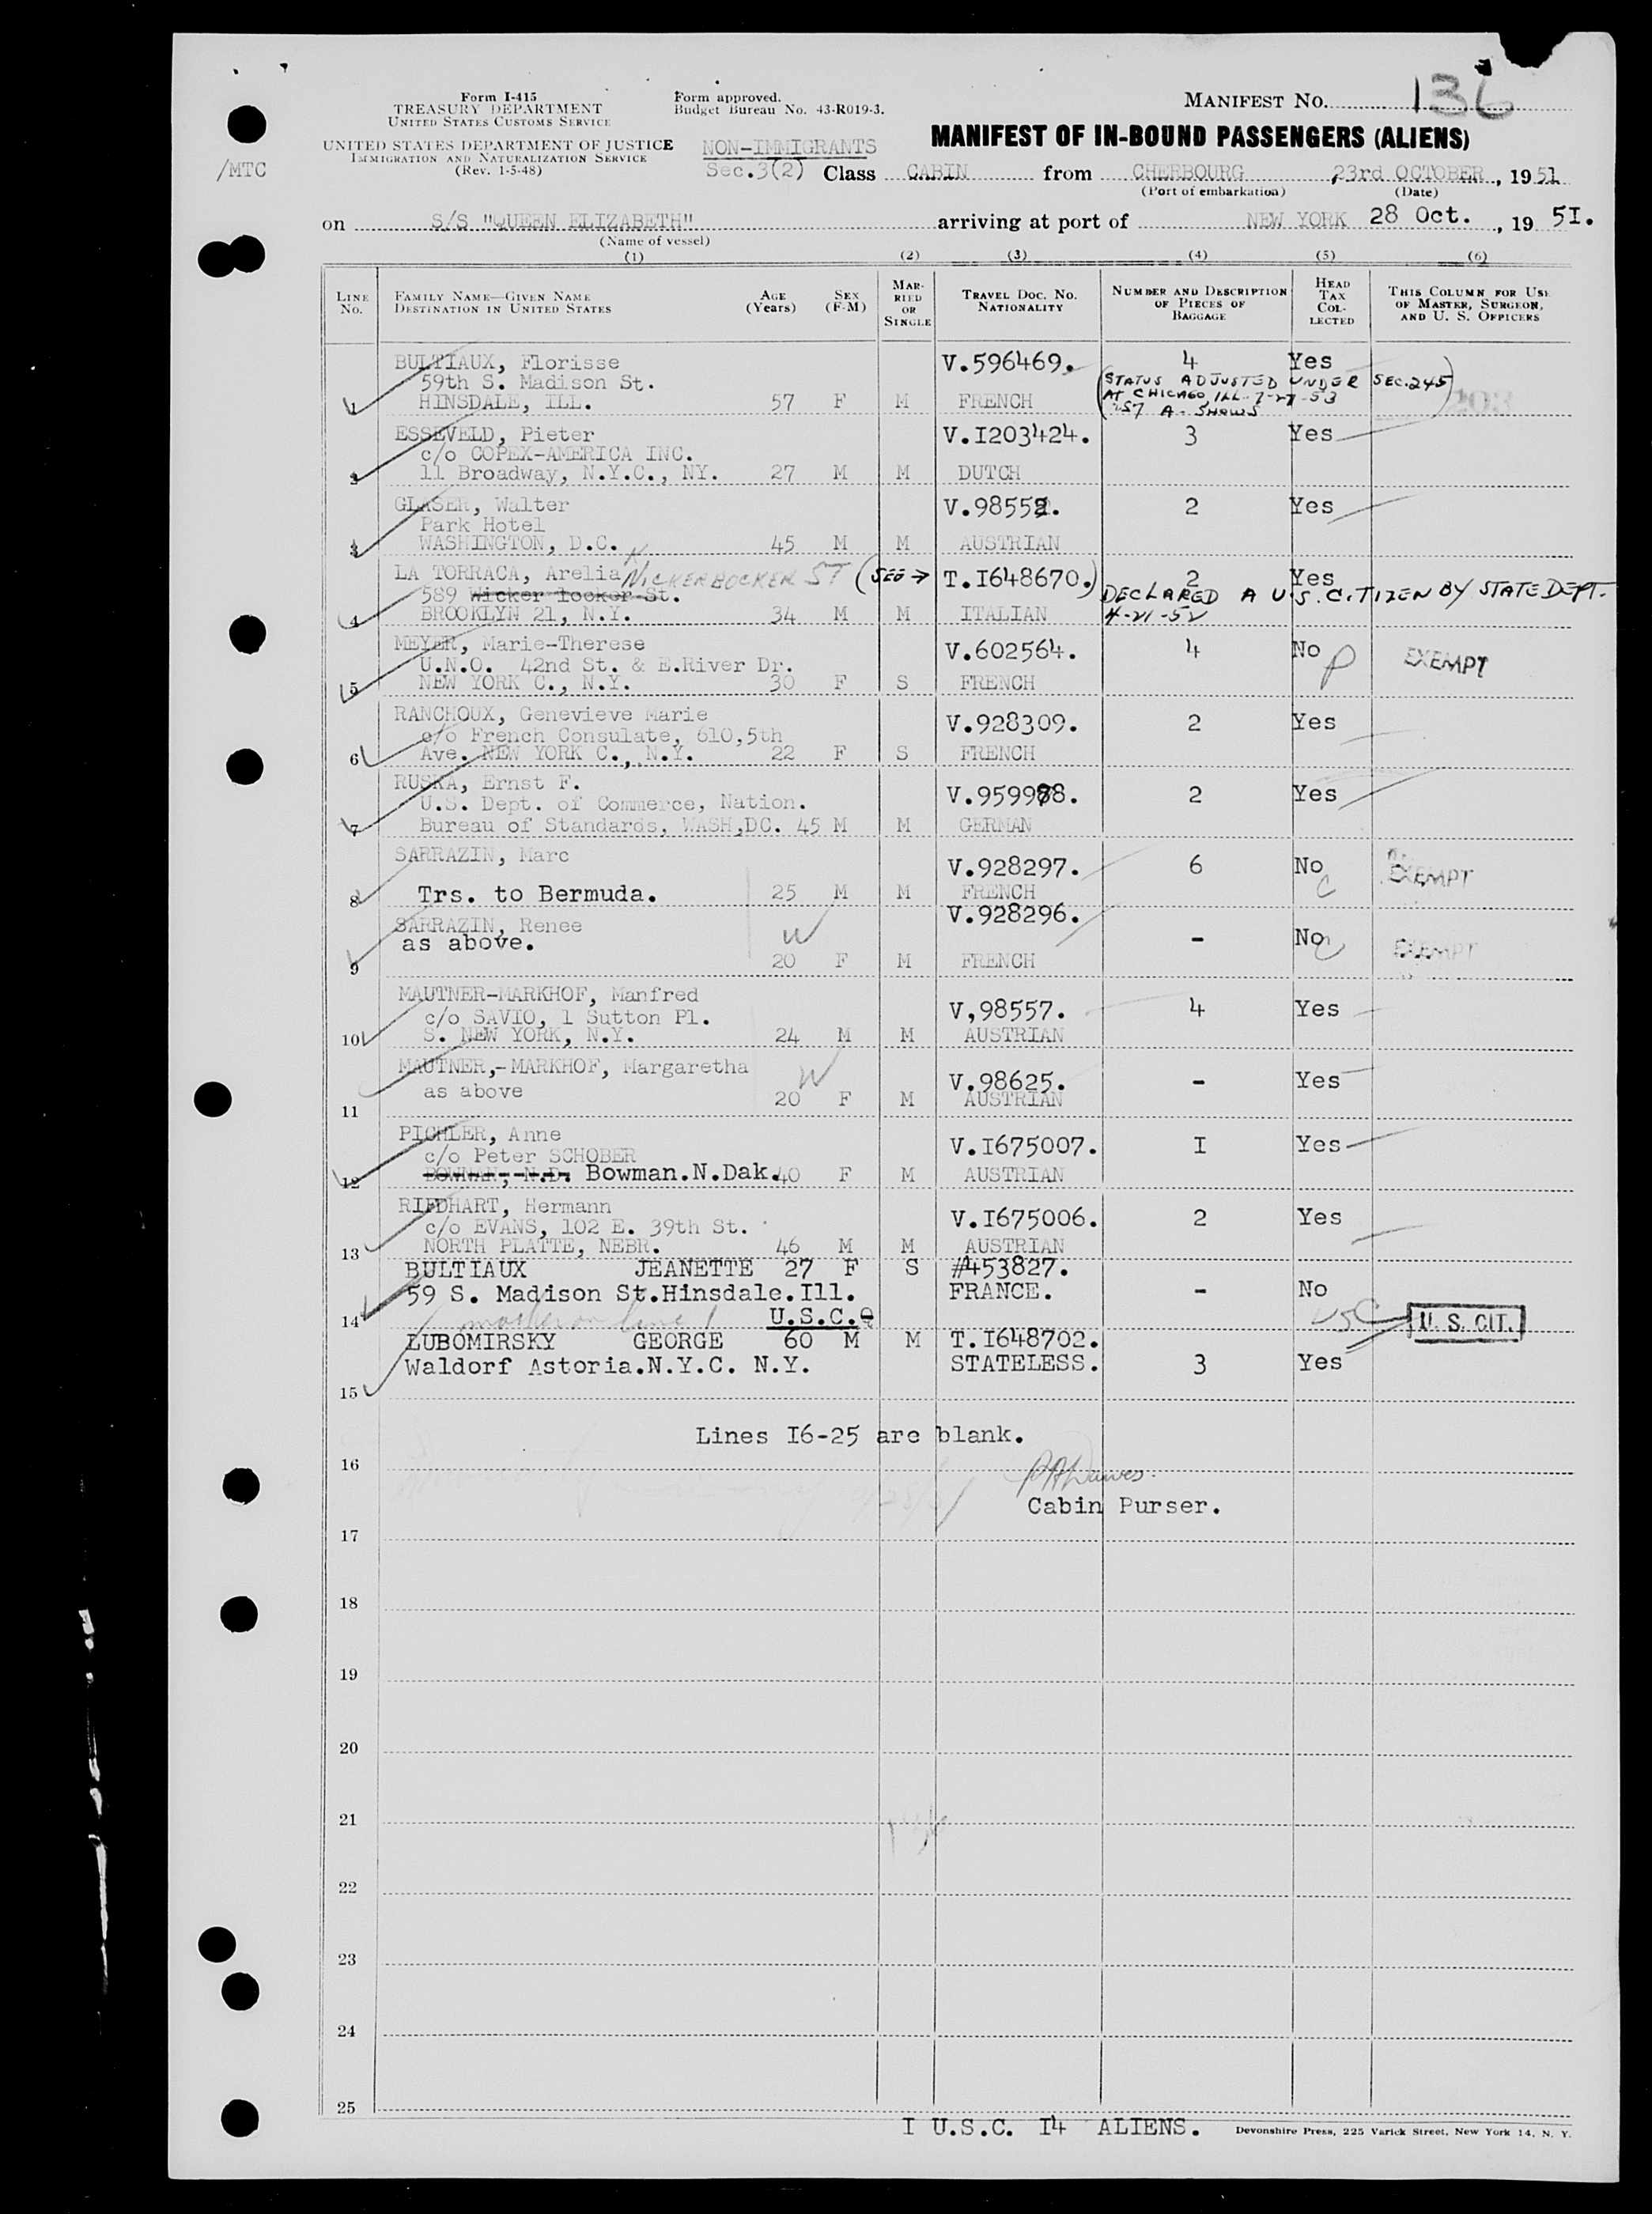 Form I-415
TREASURY DEPARTMENT
UNITED STATES CUSTOMS SERVICE
UNITED STATES DEPARTMENT OF JUSTICE
IMMIGRATION AND NATURALIZATION SERVICE
(Rev. 1-5-48)
/MTC
Form approved.
Budget Bureau No. 43-R019-3.
MANIFEST NO. 136
MANIFEST OF IN-BOUND PASSENGERS (ALIENS)
NON-IMMIGRANTS
Sec.3(2) Class CABIN from CHERBOURG, 23rd OCTOBER, 1951
(Port of embarkation) (Date)
on S/S "QUEEN ELIZABETH" arriving at port of NEW YORK 28 Oct., 19 5I.
(Name of vessel)
(1) (2) (3) (4) (5) (6)
LINE NO. FAMILY NAME—GIVEN NAME DESTINATION IN UNITED STATES AGE (Years) SEX (F-M) MARRIED OR SINGLE TRAVEL DOC. NO. NATIONALITY NUMBER AND DESCRIPTION OF PIECES OF BAGGAGE HEAD TAX COLLECTED THIS COLUMN FOR USE OF MASTER, SURGEON, AND U. S. OFFICERS
BULTIAUX, Florisse V.596469. 4 Yes
59th S. Madison St. (STATUS ADJUSTED UNDER SEC.245)
1 HINSDALE, ILL. 57 F M FRENCH AT CHICAGO, ILL. 7-27-53
ESSEVELD, Pieter V.I203424. 3 Yes
c/o COPEX-AMERICA INC.
2 11 Broadway, N.Y.C., NY. 27 M M DUTCH
GLASER, Walter V.98552. 2 Yes
Park Hotel
3 WASHINGTON, D.C. 45 M M AUSTRIAN
LA TORRACA, Arelia KNICKERBOCKER ST (SEE → T.I648670.) 2 Yes
589 Wicker locker St. DECLARED A U.S. CITIZEN BY STATE DEPT.
4 BROOKLYN 21, N.Y. 34 M M ITALIAN 4-21-52
MEYER, Marie-Therese V.602564. 4 No EXEMPT
U.N.O. 42nd St. & E.River Dr.
5 NEW YORK C., N.Y. 30 F S FRENCH
RANCHOUX, Genevieve Marie V.928309. 2 Yes
c/o French Consulate, 610,5th
6 Ave. NEW YORK C., N.Y. 22 F S FRENCH
RUSKA, Ernst F. V.959988. 2 Yes
U.S. Dept. of Commerce, Nation.
7 Bureau of Standards, WASH,DC. 45 M M GERMAN
SARRAZIN, Marc V.928297. 6 No EXEMPT
8 Trs. to Bermuda. 25 M M FRENCH
SARRAZIN, Renee V.928296.
as above. W - No EXEMPT
9 20 F M FRENCH
MAUTNER-MARKHOF, Manfred V,98557. 4 Yes
c/o SAVIO, 1 Sutton Pl.
10 S. NEW YORK, N.Y. 24 M M AUSTRIAN
MAUTNER,-MARKHOF, Margaretha W V.98625. - Yes
as above
11 20 F M AUSTRIAN
PICHLER, Anne V.I675007. I Yes
c/o Peter SCHOBER
12 BOWMAN, N.D. Bowman.N.Dak. 40 F M AUSTRIAN
RIEDHART, Hermann V.I675006. 2 Yes
c/o EVANS, 102 E. 39th St.
13 NORTH PLATTE, NEBR. 46 M M AUSTRIAN
BULTIAUX JEANETTE 27 F S #453827.
59 S. Madison St.Hinsdale.Ill. FRANCE. - No
14 mother on line 1 U.S.C. USC U. S. CIT.
LUBOMIRSKY GEORGE 60 M M T.I648702.
Waldorf Astoria.N.Y.C. N.Y. STATELESS. 3 Yes
15
Lines I6-25 are blank.
16
Cabin Purser.
17
18
19
20
21
22
23
24
25
I U.S.C. I4 ALIENS.
Devonshire Press, 225 Varick Street, New York 14, N. Y.